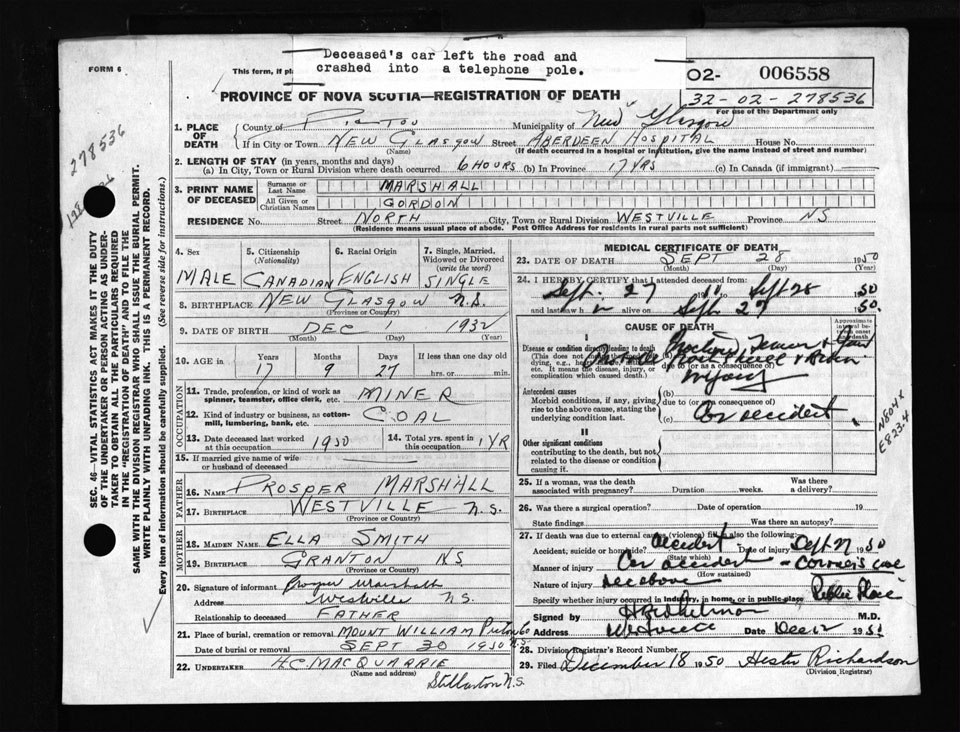 Deceased's car left the road and
crashed into a telephone pole.
FORM 6
This form, if pl
O2- 006558
32-02-278536
For use of the Department only
PROVINCE OF NOVA SCOTIA—REGISTRATION OF DEATH
1. PLACE OF DEATH
County of Pictou Municipality of New Glasgow
If in City or Town NEW GLASGOW Street ABERDEEN HOSPITAL House No.
(Name) (If death occurred in a hospital or institution, give the name instead of street and number)
2. LENGTH OF STAY (in years, months and days)
(a) In City, Town or Rural Division where death occurred 6 HOURS (b) In Province 17 YRS (c) In Canada (if immigrant)
3. PRINT NAME OF DECEASED
Surname or Last Name MARSHALL
All Given or Christian Names GORDON
RESIDENCE No. Street NORTH City, Town or Rural Division WESTVILLE Province NS
(Residence means usual place of abode. Post Office Address for residents in rural parts not sufficient)
278536
SEC. 46—VITAL STATISTICS ACT MAKES IT THE DUTY
OF THE UNDERTAKER OR PERSON ACTING AS UNDER-
TAKER TO OBTAIN ALL THE PARTICULARS REQUIRED
IN THE "REGISTRATION OF DEATH" AND TO FILE THE
SAME WITH THE DIVISION REGISTRAR WHO SHALL ISSUE THE BURIAL PERMIT.
WRITE PLAINLY WITH UNFADING INK. THIS IS A PERMANENT RECORD.
Every item of information should be carefully supplied. (See reverse side for instructions.)
4. Sex 5. Citizenship (Nationality) 6. Racial Origin 7. Single, Married, Widowed or Divorced (write the word)
MALE CANADIAN ENGLISH SINGLE
8. BIRTHPLACE NEW GLASGOW N.S.
(Province or Country)
9. DATE OF BIRTH DEC 1 1932
(Month) (Day) (Year)
10. AGE in Years Months Days If less than one day
17 9 27 hrs. or min.
OCCUPATION
11. Trade, profession, or kind of work as spinner, teamster, office clerk, etc. MINER
12. Kind of industry or business, as cotton-mill, lumbering, bank, etc. COAL
13. Date deceased last worked at this occupation 1950 14. Total yrs. spent in this occupation 1 YR
15. If married give name of wife or husband of deceased
FATHER
16. NAME PROSPER MARSHALL
17. BIRTHPLACE WESTVILLE N.S.
(Province or Country)
MOTHER
18. MAIDEN NAME ELLA SMITH
19. BIRTHPLACE GRANTON NS
(Province or Country)
20. Signature of informant Prosper Marshall
Address Westville N.S.
Relationship to deceased FATHER
21. Place of burial, cremation or removal MOUNT WILLIAM Pictou Co
Date of burial or removal SEPT 30 1950 N.S.
22. UNDERTAKER H.C. MACQUARRIE
(Name and address)
Stellarton N.S.
MEDICAL CERTIFICATE OF DEATH
23. DATE OF DEATH SEPT 28 1950
(Month) (Day) (Year)
24. I HEREBY CERTIFY that I attended deceased from:
Sept. 27 to Sept 28 1950
and last saw h im alive on Sept 27 1950.
CAUSE OF DEATH
Approximate interval between onset and death
I
Disease or condition directly leading to death
(This does not mean the mode of dying, e.g., heart
etc. It means the disease, injury, or complication which caused death.)
(a) Fractured Femur +
due to (or as a consequence of)
injury
Antecedent causes
Morbid conditions, if any, giving rise to the above cause, stating the underlying condition last.
(b)
due to (or as a consequence of)
(c) Car accident
II
Other significant conditions
contributing to the death, but not related to the disease or condition causing it.
N804X
E823.4
25. If a woman, was the death associated with pregnancy? Duration weeks. Was there a delivery?
26. Was there a surgical operation? Date of operation 19
State findings Was there an autopsy?
27. If death was due to external causes (violence) fill in also the following:
Accident, suicide or homicide? Accident Date of injury Sept 27 1950
(State which)
Manner of injury Car accident - Coroner's case
(How sustained)
Nature of injury See above
Specify whether injury occurred in industry, in home, or in public place Public Place
Signed by M.D.
Address Westville Date Dec 12 1950
28. Division Registrar's Record Number
29. Filed December 18 1950 Hester Richardson
(Division Registrar)